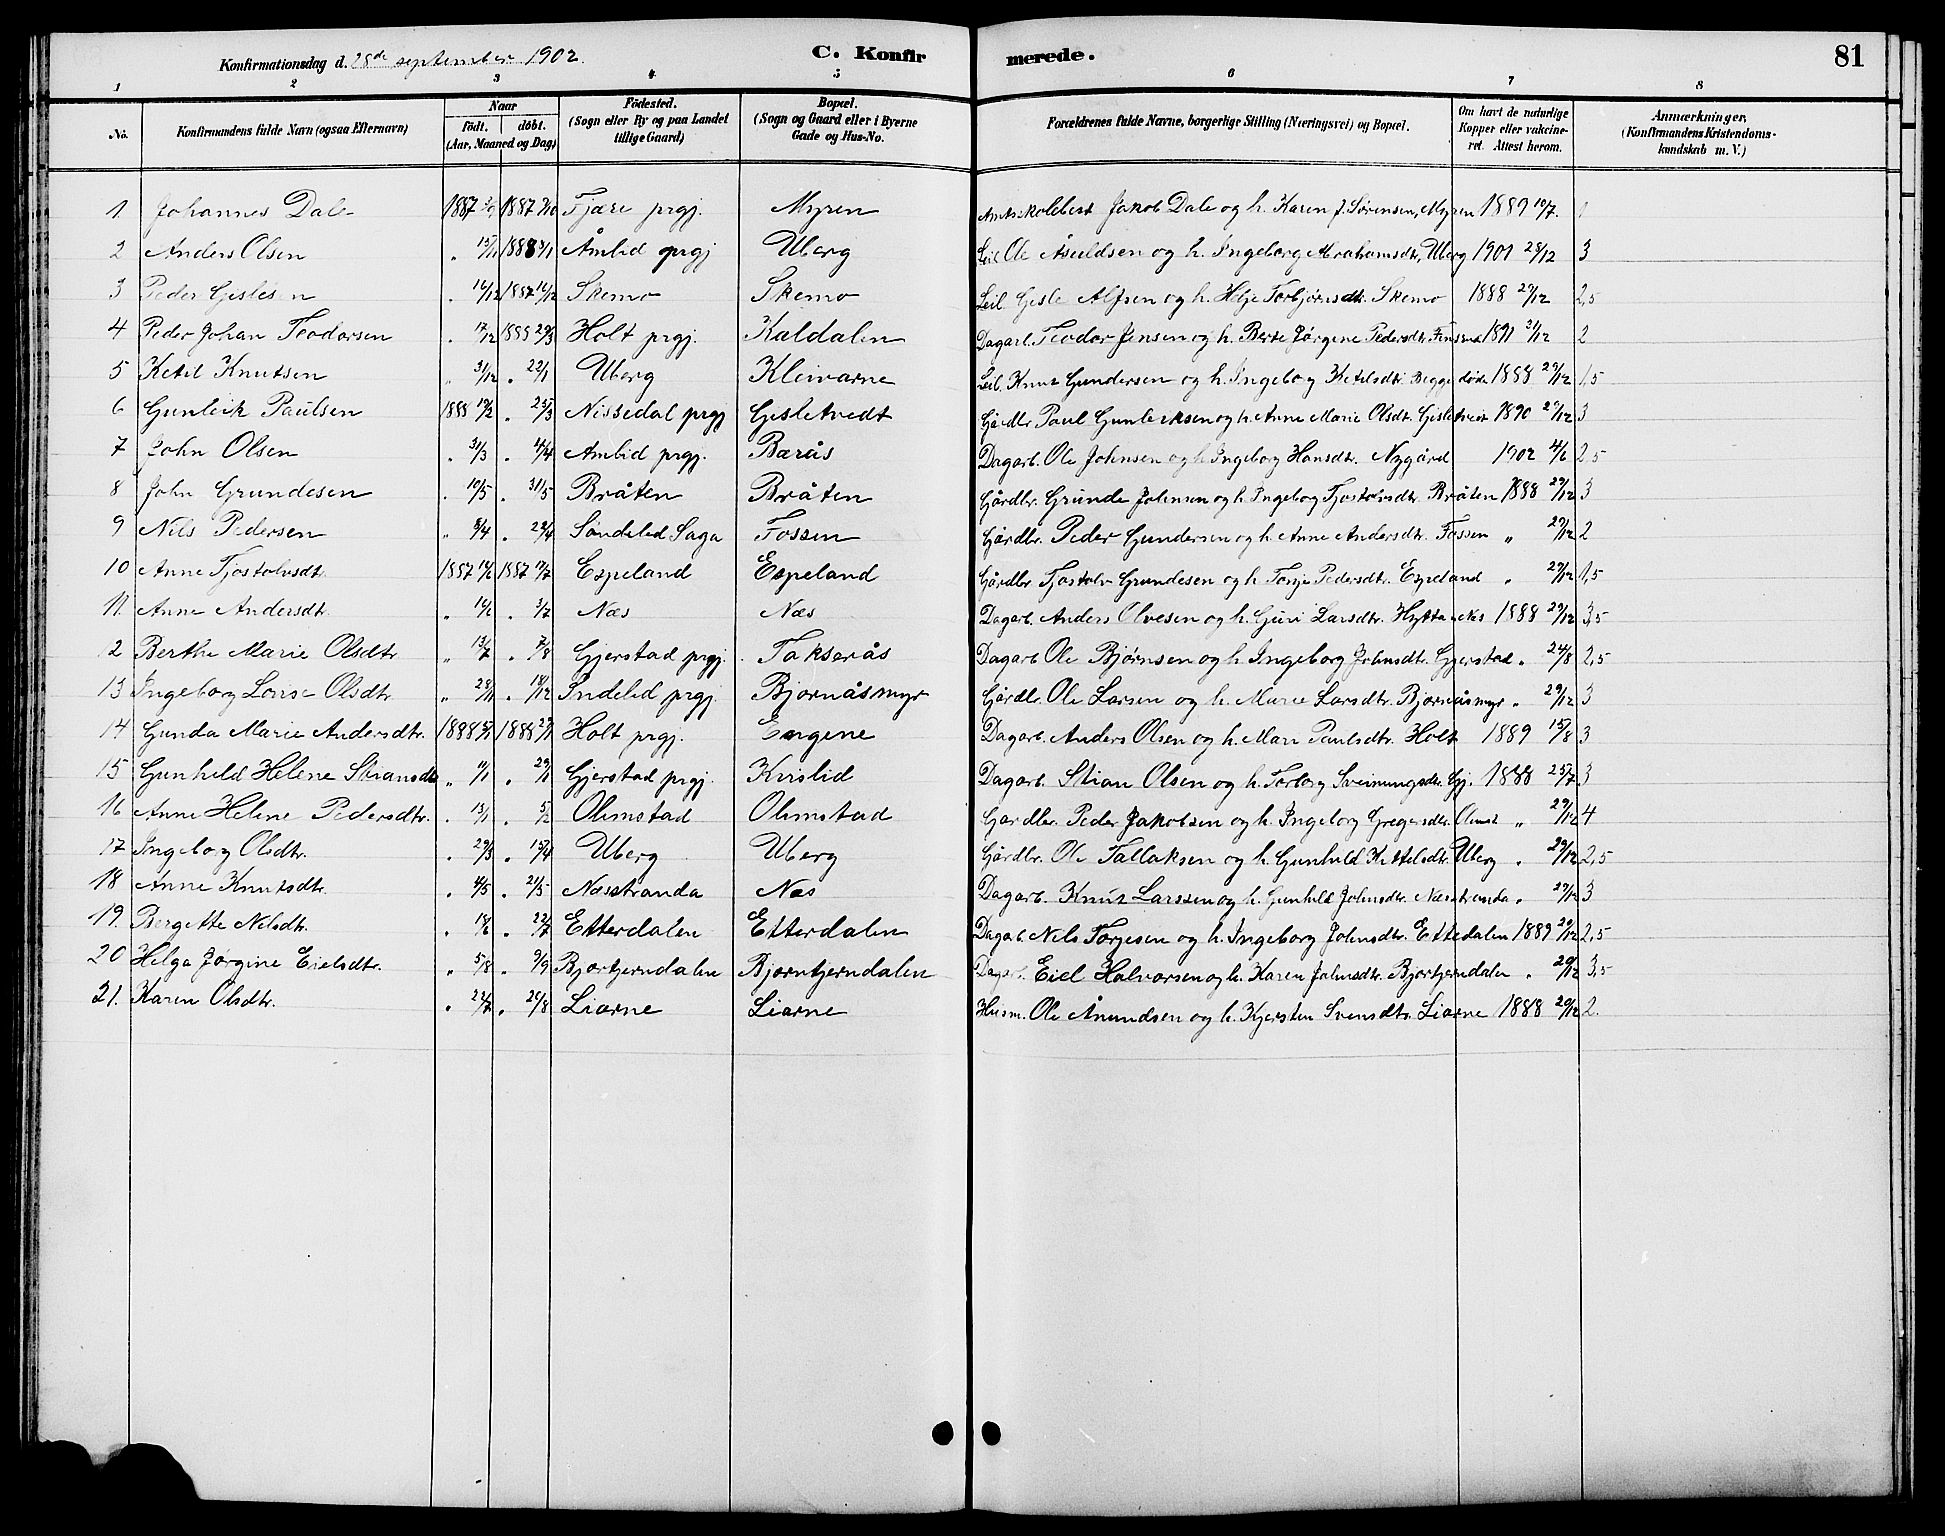 Konfirmationsdag d. 28de september 1902. C. Konfir merede. 81
1 2 3 4 5 6 7 8
No. Konfirmandens fulde Navn (ogsaa Efternavn) Naar födt. döbt. (Aar, Maaned og Dag) Födested. (Sogn eller By og paa Landet tillige Gaard) Bopæl. (Sogn og Gaard eller i Byerne Gade og Hus-No. Forældrenes fulde Navne, borgerlige Stilling (Næringsvei) og Bopæl. Om havt de naturlige Kopper eller vakcineret. Attest herom. Anmærkninger, (Konfirmandens Kristendomskundskab m. V.)
1 Johannes Dale 1887 1887 Fjære prgj. Myren Jakob Dale og h. Karen J. Sørensen, Myren 1889 10/7. 1
2 Anders Olsen " 15/11 1888 Åmlid prgj Uberg Leil. Ole Åsuldsen og h. Ingeborg Abrahamsdtr, Uberg 1901 28/12 3
3 Peder Gislesen " 1887 Skemo Skemo Leil Gisle Alfsen og h. Helje Torbjørnsdtr. Skemo 1888 29/12 2,5
4 Peder Johan Teodorsen . 17/12 1888 29/3 Holt prgj. Kaldalen Dagarb. Teodor Jensen og h. Berte Jørgine Pedersdtr 1891 21/12 2
5 Ketil Knutsen " 31/12 . 22/1 Uberg Kleivarne Leil. Knut Gundersen og h. Ingeborg Ketilsdtr. Begge døde 1888 29/12 1,5
6 Gunleik Paulsen 1888 19/2 . 25/3 Nissedal prgj Gisletvedt Gårdbr Paul Gunleiksen og h. Anne Marie Olsdtr. Gisletveit 1890 29/12 3
7 John Olsen . 31/3 . Åmlid prgj. Barås Dagarb. Ole Johnsen og h. Ingeborg Hansdtr. Nygård 1902 4/6 2,5
8 John Grundesen . 10/5 . 31/5 Bråten Bråten Gårdbr. Grunde Johnsen og h. Ingeborg Tjostolvsdtr. Bråten 1888 29/12 3
9 Nils Pedersen " 8/4 . 22/4 Søndeled Saga Fossen Gårdbr. Peder Gundersen og h. Anne Andersdtr. Fossen " 29/12 2
10 Anne Tjostolvsdt. 1887 1887 Espeland Espeland Gårdbr Tjostolv Grundesen og h. Torje Pedersdtr. Espeland " 29/12 1,5
11. Anne Andersdt. " . 3/7 Næs Næs Dagarb. Anders Olvesen og h. Guri Larsdtr. Hytta Næs 1888 29/12 3,5
2 Berthe Marie Olsdtr " 13/7 . 7/8 Gjerstad prgj. Takserås Dagarb Ole Bjørnsen og h. Ingeborg Johnsdtr. Gjerstad . 24/8 2,5
13 Ingeborg Lovise Olsdtr. " 28/11 . 18/12 Søndeled prgj. Bjornåsmyr Gårdbr. Ole Larsen og h. Marie Larsdtr. Bjornåsmyr " 29/12 3
14 Gunda Marie Andersdtr. 1888 1888 Holt prgj. Engene Dagarb. Anders Olsen og h. Mari Paulsdtr. Holt 1889 15/8 3
15 Gunhild Helene Stiansdtr " . 29/1 Gjerstad prgj. Kvislid Dagarb. Stian Olsen og h. Torborg Sveinungsdtr. Gj. 1888 25/7 3
16 Anne Helene Pedersdtr. . 13/1 . 5/2 Olimstad Olimstad Gårdbr. Peder Jakobsen og h. Ingeborg Gregersdtr. Olimst " 29/12 4
17 Ingeborg Olsdtr. . 29/3 . 15/4 Uberg Uberg Gårdbr. Ole Tallaksen og h. Gunhild Kittelsdtr. Uberg . 29/12 2,5
18 Anne Knutsdtr. . 4/5 . 21/5 Næsstranda Næs Dagarb. Knut Larssen og h. Gunhild Johnsdtr. Næsstranda . 29/12 3
19. Bergitte Nilsdtr. . 18/6 . 22/7 Etterdalen Etterdalen Dagarb Nils Torjesen og h. Ingeborg Johnsdtr. Ettedalen 1889 29/12 2,5
20 Helga Jørgine Eielsdtr. " 5/8 . 9/9 Bjortjerndalen Bjorntjerndalen Dagarb. Eiel Halvorsen og h. Karen Johnsdtr. Bjortjerndalen . 29/12 3,5
21. Karen Olsdtr. . 22/7 . 26/8 Liarne Liarne Husm. Ole Ånundsen og h. Kjersten Svensdtr. Liarne 1888 29/12 2.